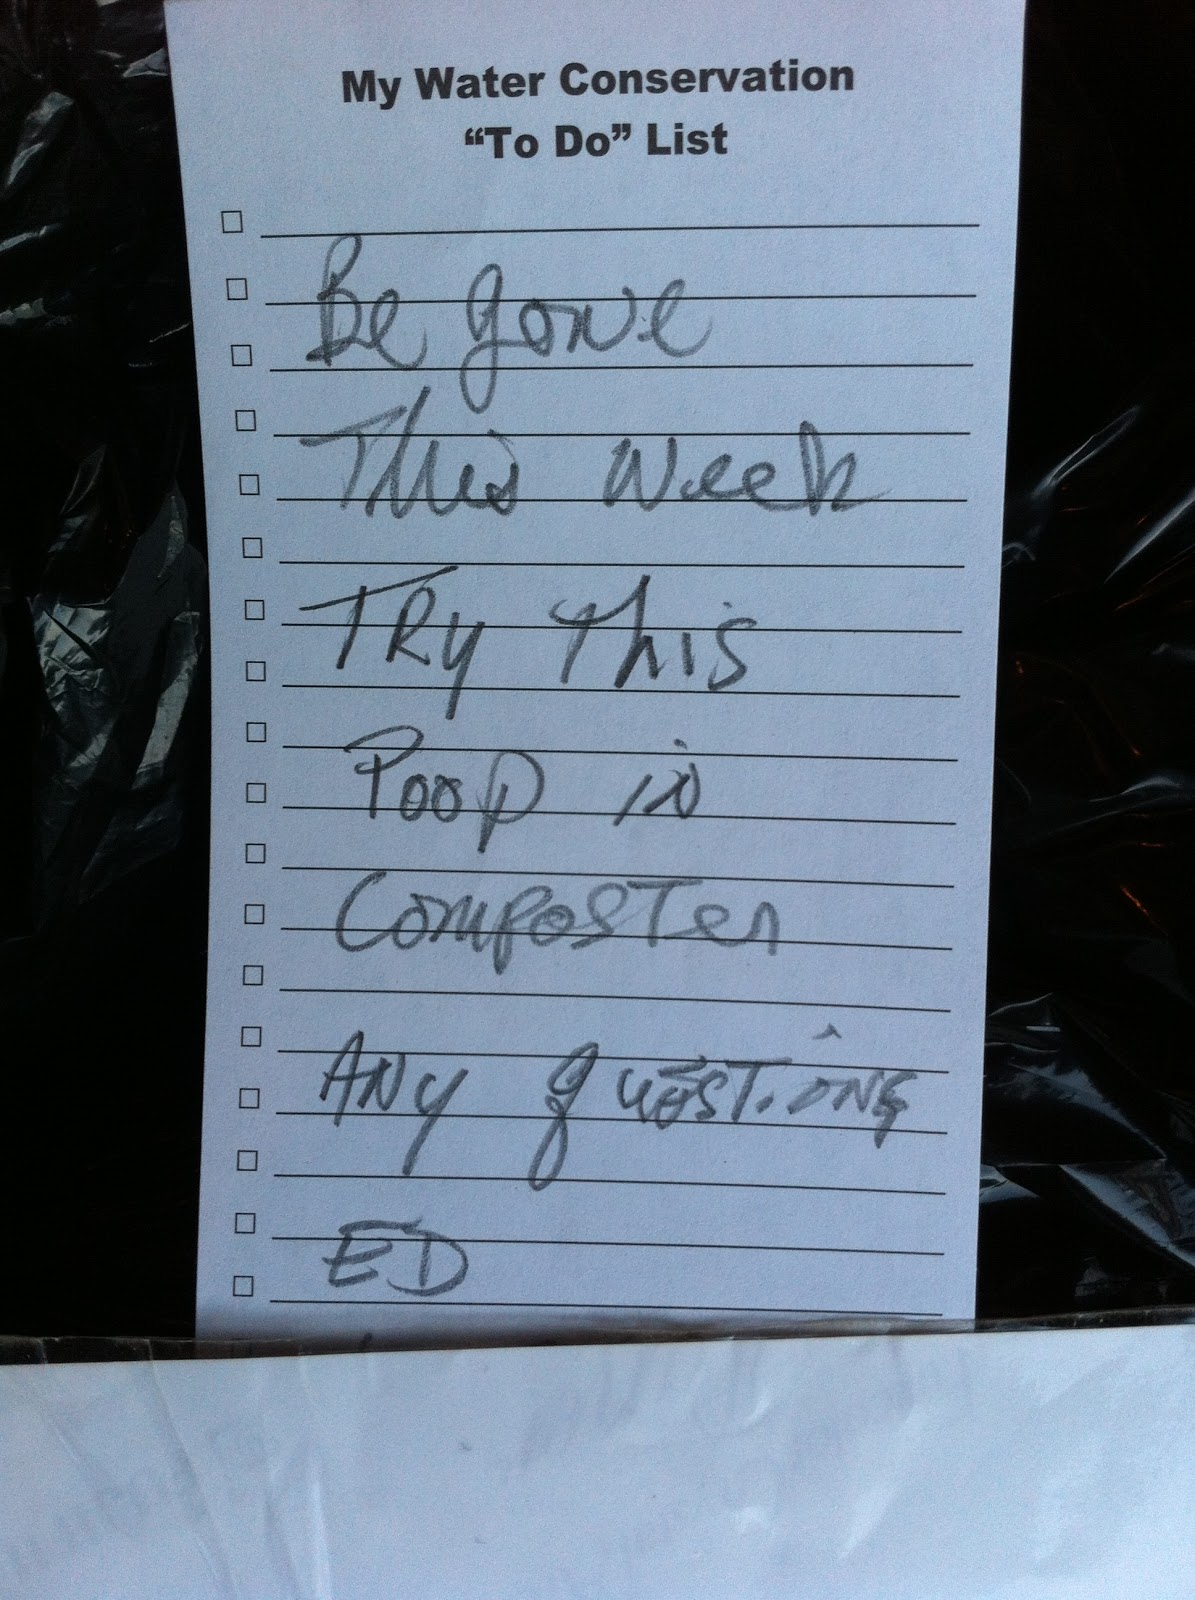 My Water Conservation
“To Do” List
Be gone
This Week
TRy This
Poop in
ComposTer
ANy questions
ED